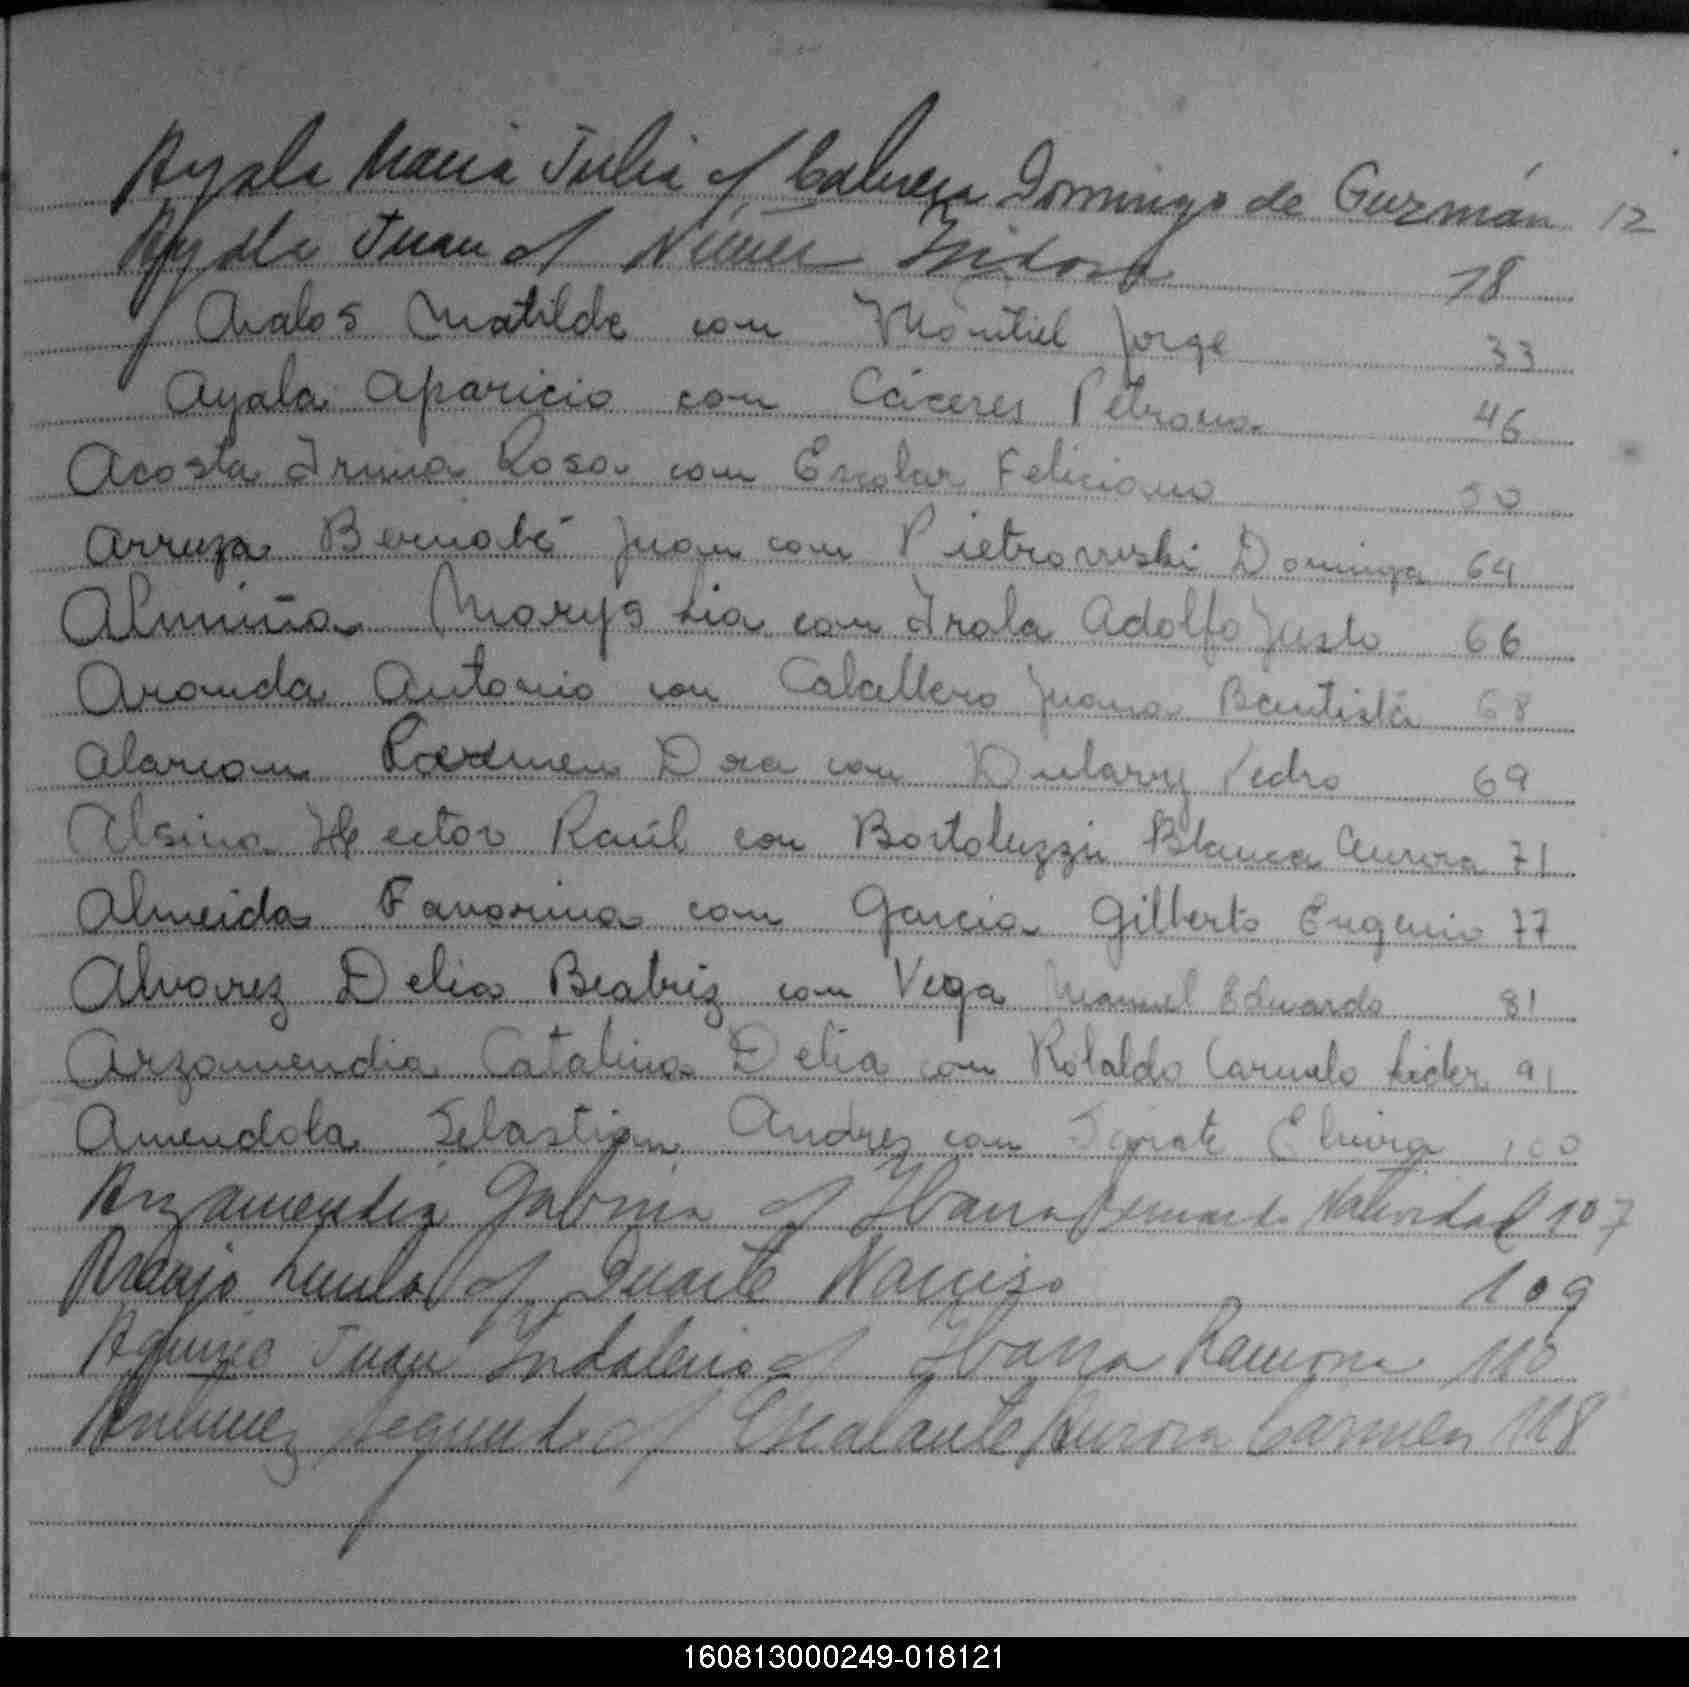 Ayala Maria Julia c/ Cabrera Domingo de Guzmán 12
Ayala Juan c/ Núñez Isidora 18
Avalos Matilde con Montiel Jorge 33
Ayala Aparicio con Cáceres Petrona 46
Acosta Irma Rosa con Escobar Feliciano 50
Arruza Bernabé Juan con Pietrowski Dominga 64
Almiña Marys Lia con Irala Adolfo Justo 66
Aranda Antonio con Caballero Juana Bautista 68
Alarcon Carmen Dra con Dularry Pedro 69
Alsina Hector Raúl con Bortoluzzi Blanca Aurora 71
Almeida Favorina con Garcia Gilberto Eugenio 77
Alvarez Delia Beatriz con Vega Manuel Eduardo 81
Arzamendia Catalina Delia con Rolaldo Carmelo Lider 91
Amendola Sebastian Andres con Elvira 100
Arzamendia Gabina c/ Ibarra Bernardo Natividad 107
Araujo c/ Duarte Narciso 109
Aquino Juan Indalecio c/ Ibarra Ramona 110
Antunez Segundo c/ Escalante Aurora Carmen 118
160813000249-018121